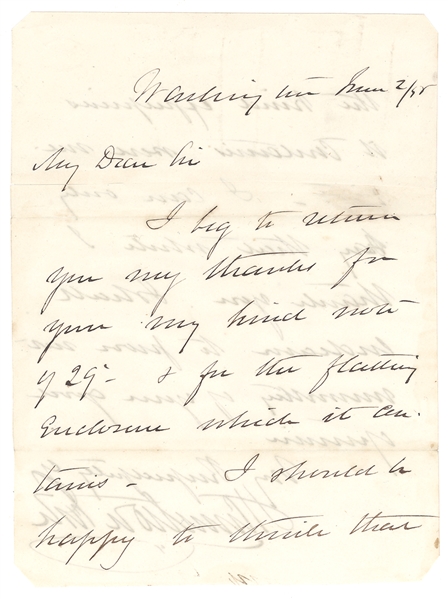 Washington June 2/58
My Dear Sir
I beg to return
you my thanks for
your my kind note
of 29 - & for the flatting
Enclosure which it con-
tains - I should be
happy to think that